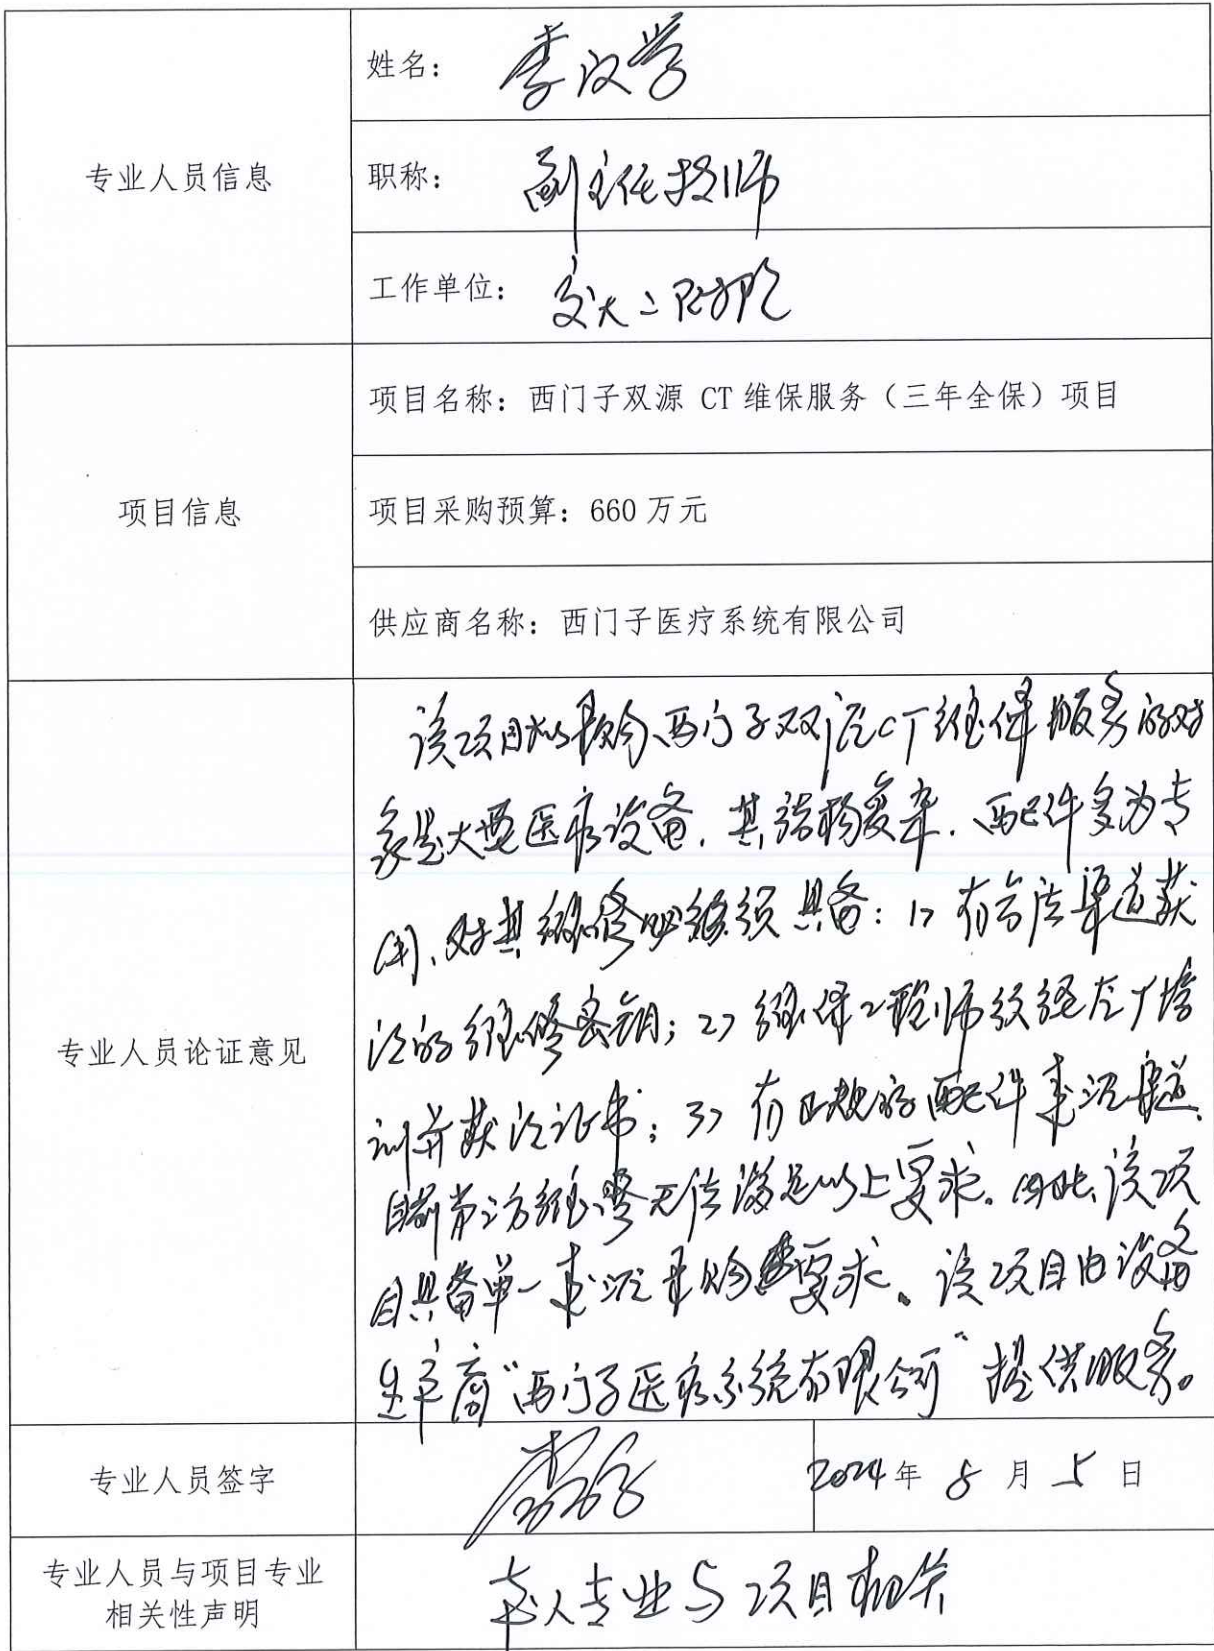 专业人员信息
姓名：李汉学
职称：副主任技师
工作单位：交大二附院
项目信息
项目名称：西门子双源 CT 维保服务（三年全保）项目
项目采购预算：660 万元
供应商名称：西门子医疗系统有限公司
专业人员论证意见
该项目拟采购西门子双源CT维保服务的对
象是大型医疗设备，其结构复杂，配件多为专
用，对其维修必须具备：1）有合法渠道获
得的维修密钥；2）维保工程师须经原厂培
训并获得证书；3）有正规的配件来源渠道。
目前第三方维修无法满足以上要求。因此，该项
目具备单一来源采购要求。该项目由设备
生产商“西门子医疗系统有限公司”提供服务。
专业人员签字
2024年 8 月 5 日
专业人员与项目专业
相关性声明
本人专业与项目相关